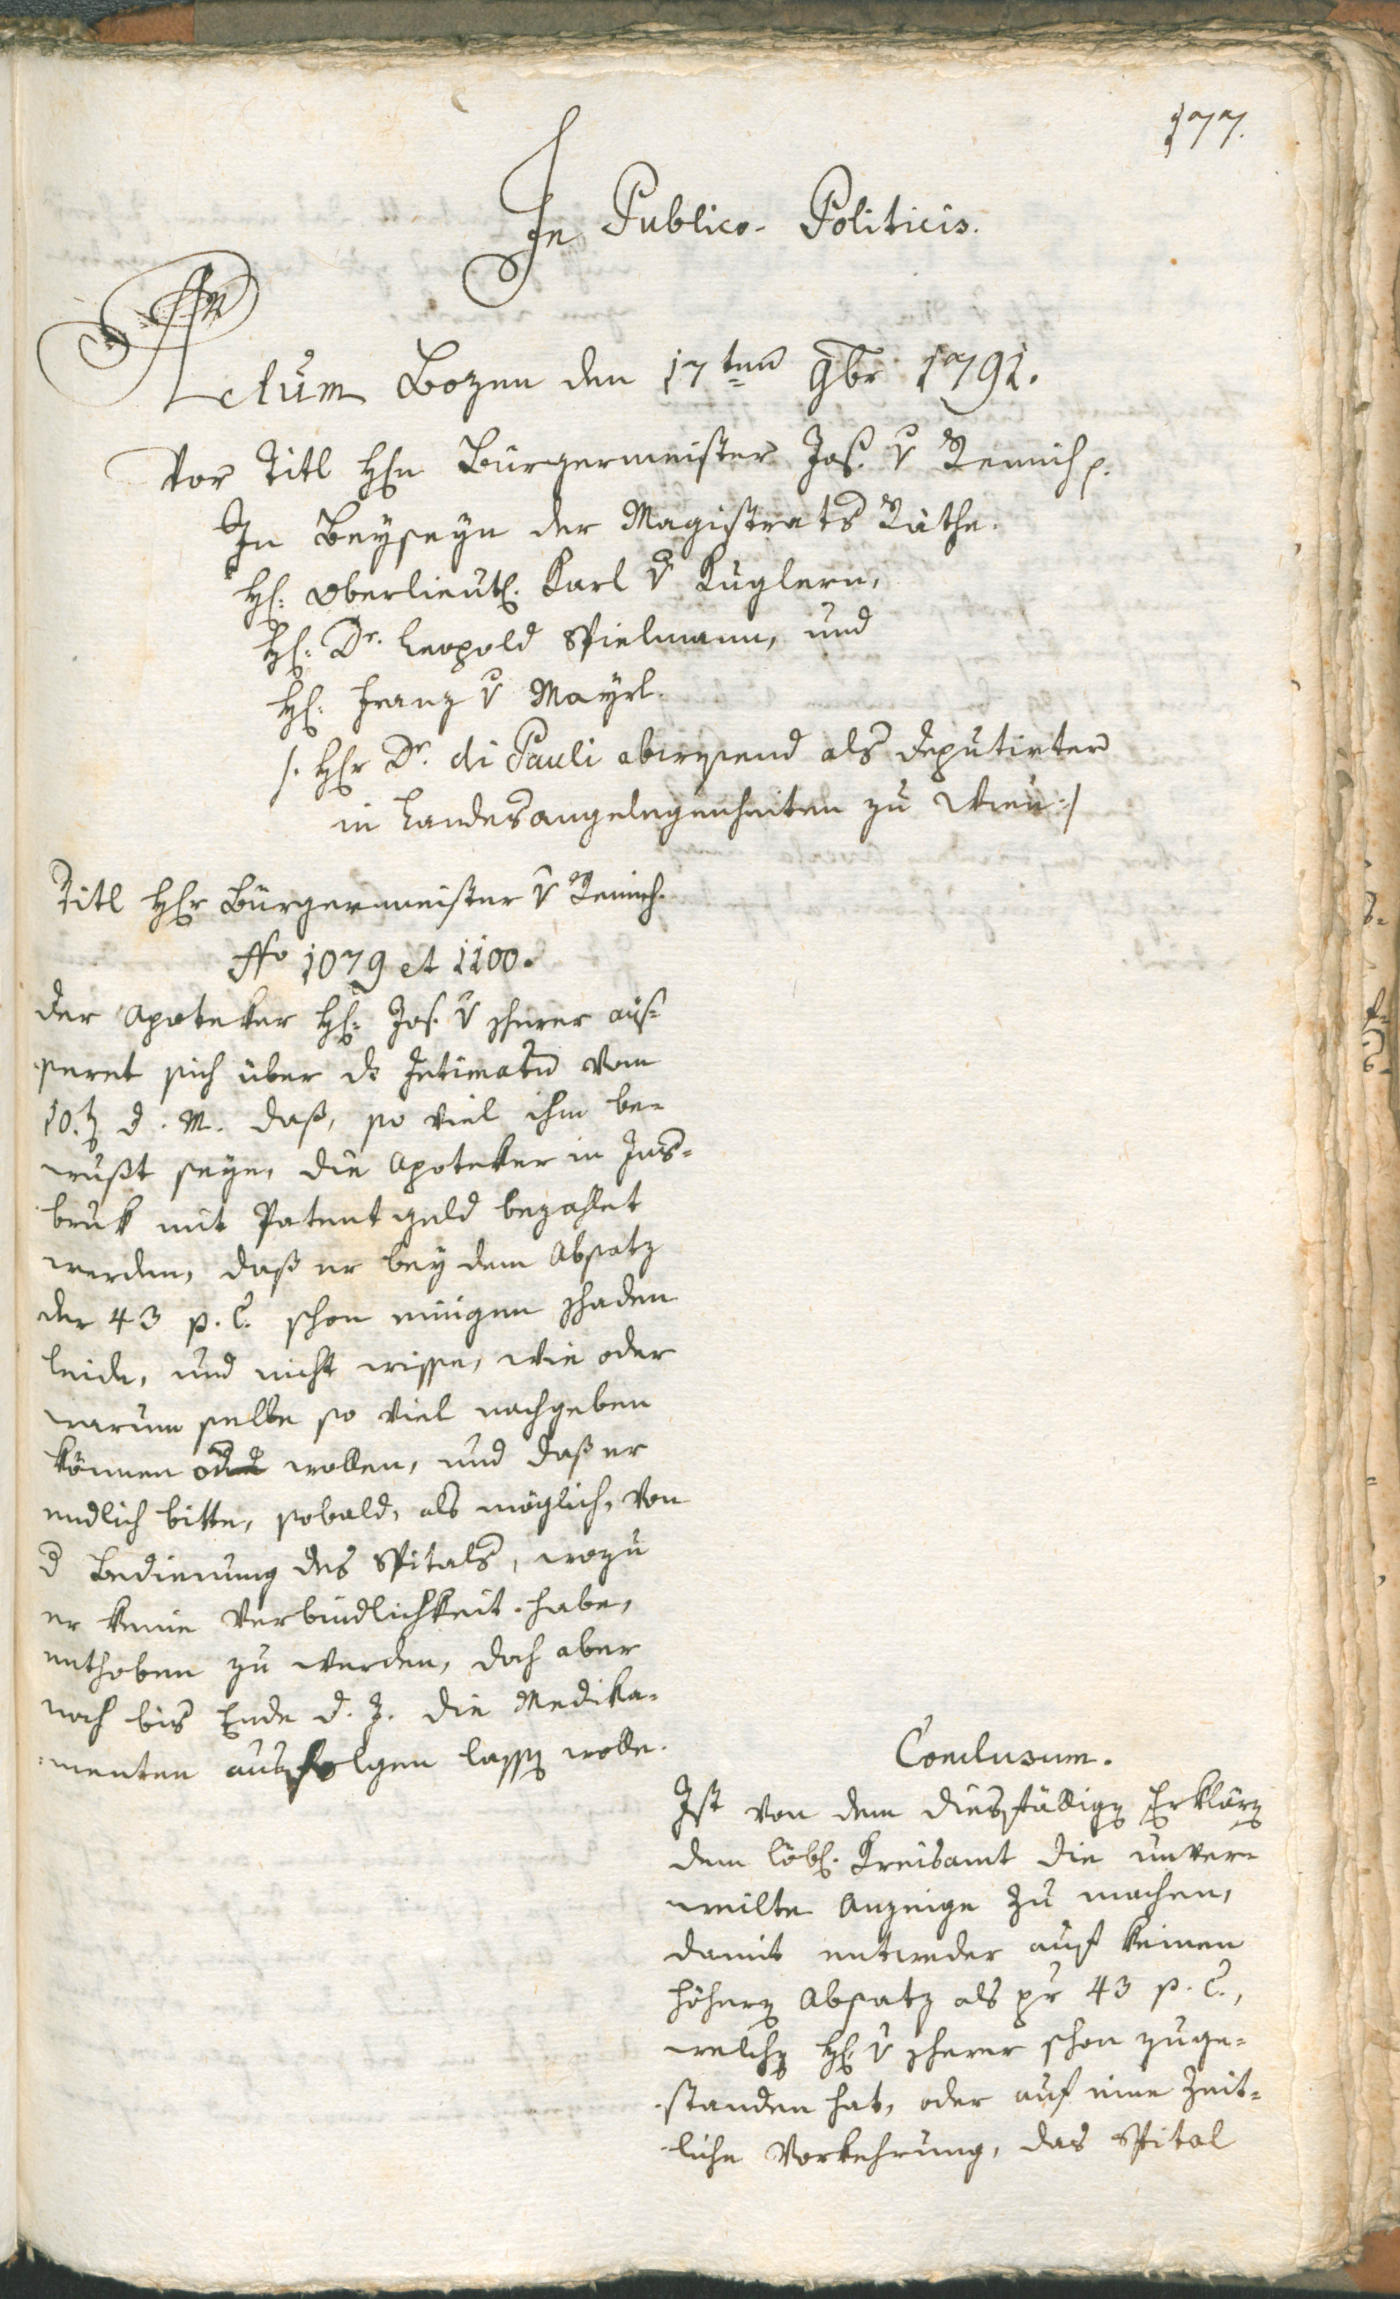 177.
In Publico-Politicis.
Actum Bozen den 17ten 9br 1791.
Vor Titl Hh Bürgermeister Jos. v Remich p.
In Beyseyn der Magistrats Räthe.
H: Oberlieut. Karl v Kuglern,
H: Dr. Leopold Spielmann, und
H: Franz v Mayrl.
/: Hr Dr. di Pauli abwesend als Deputirter
in Landesangelegenheiten zu Wien :/
Titl Hr Bürgermeister v Remich.
No 1079 et 1100.
Der Apoteker H: Jos. v Scherer aus-
seret sich über ds Intimatu vom
10.t d. M. daß, so viel ihm be-
wußt seye, die Apoteker in Ins-
bruk mit Patentgeld bezahlet
werden, daß er bey dem Absatz
der 43 p. C. schon einigen Schaden
leide, und nicht wisse, wie oder
warum selbe so viel nachgeben
können oder wollen, und daß er
endlich bitte, sobald, als möglich, von
d Bedienung des Spitals, wozu
er keine Verbindlichkeit habe,
enthoben zu werden, doch aber
noch bis Ende d. J. die Medika-
menten ausfolgen lassen wolle.
Conclusum.
Ist von dem diesfälligen Erklären
dem löbl. Kreisamt die unver-
weilte Anzeige zu machen,
damit entweder auf keinen
höhern Absatz als pr 43 p. C.,
welchen H: v Scherer schon zuge-
standen hat, oder auf eine Zeit-
liche Vorkehrung, das Spital